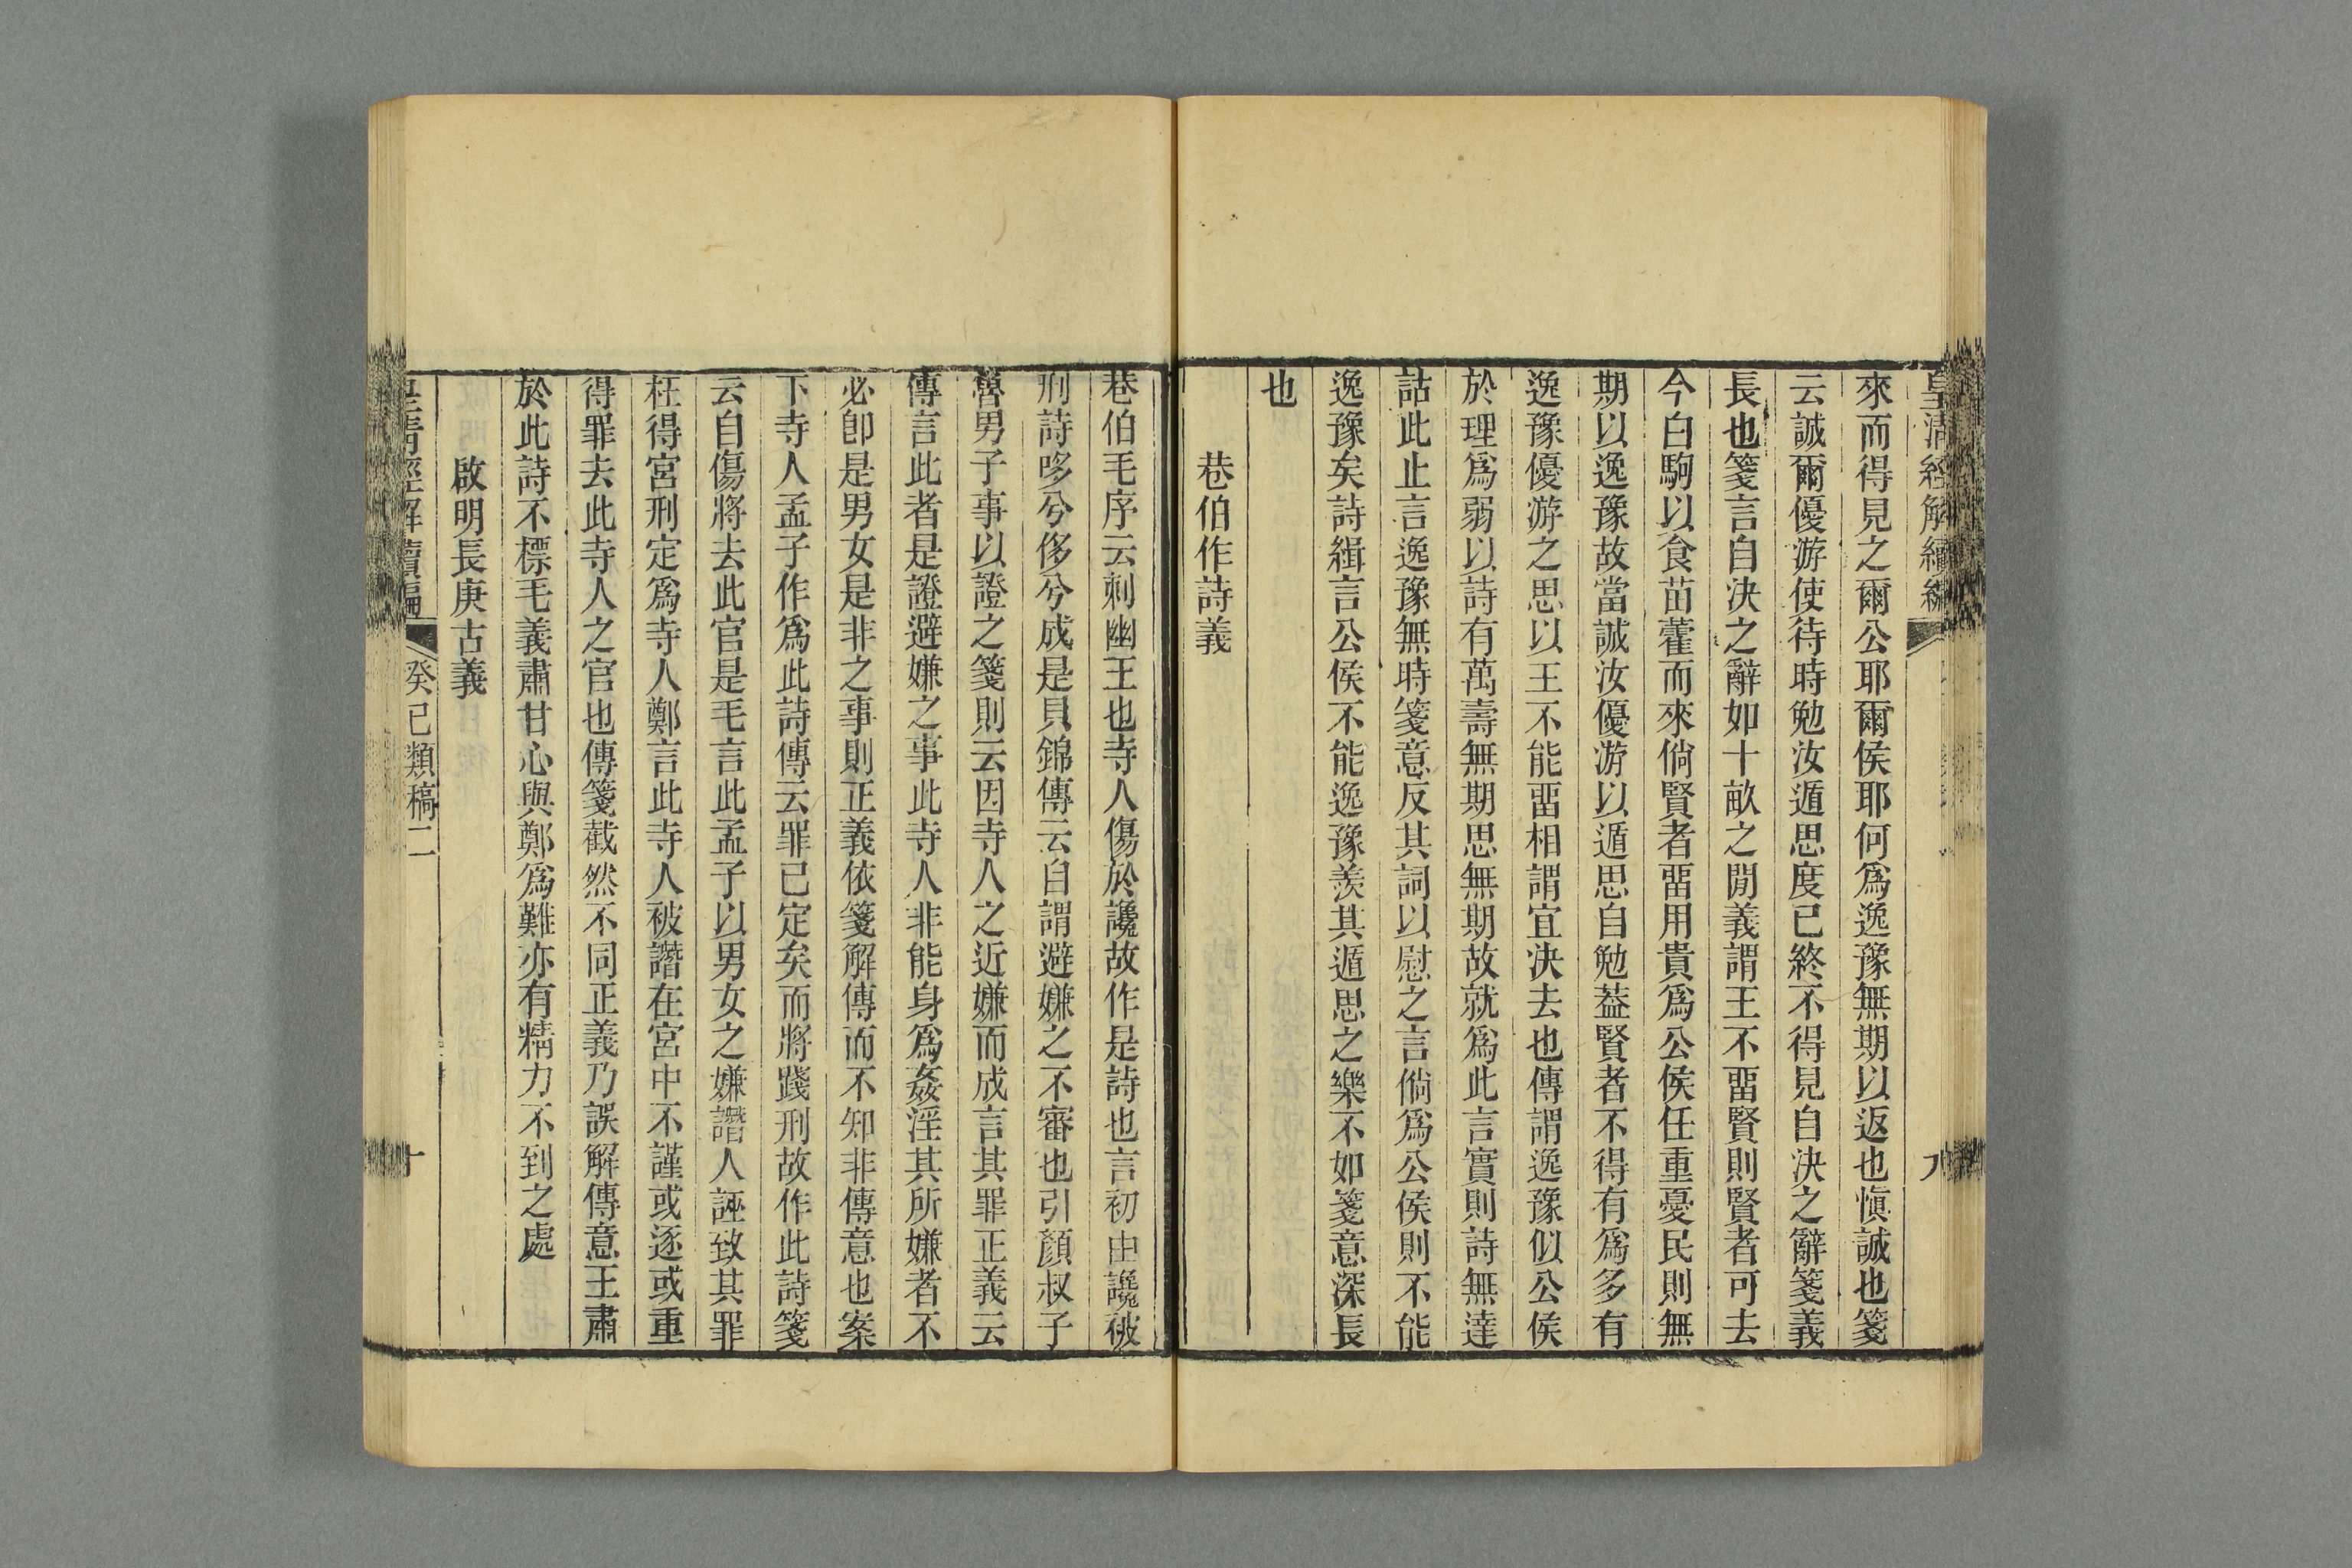 皇清經解續編
九
來而得見之爾公耶爾侯耶何爲逸豫無期以返也愼誠也箋
云誠爾優游使待時勉汝遁思度已終不得見自决之辭箋義
長也箋言自決之辭如十畝之閒義謂王不畱賢則賢者可去
今白駒以食苗藿而來倘賢者畱用貴爲公侯任重憂民則無
期以逸豫故當誠汝優游以遁思自勉葢賢者不得有爲多有
逸豫優游之思以王不能畱相謂宜決去也傳謂逸豫似公侯
於理爲弱以詩有萬壽無期思無期故就爲此言實則詩無達
詁此止言逸豫無時箋意反其詞以慰之言倘爲公侯則不能
逸豫矣詩緝言公侯不能逸豫羨其遁思之樂不如箋意深長
也
巷伯作詩義
巷伯毛序云刺幽王也寺人傷於讒故作是詩也言初由讒被
刑詩哆兮侈兮成是貝錦傳云自謂避嫌之不審也引顏叔子
魯男子事以證之箋則云因寺人之近嫌而成言其罪正義云
傳言此者是證避嫌之事此寺人非能身爲姦淫其所嫌者不
必卽是男女是非之事則正義依箋解傳而不知非傳意也案
下寺人孟子作爲此詩傳云罪已定矣而將踐刑故作此詩箋
云自傷將去此官是毛言此孟子以男女之嫌譖人誣致其罪
枉得宮刑定爲寺人鄭言此寺人被譖在宮中不謹或逐或重
得罪去此寺人之官也傳箋截然不同正義乃誤解傳意王肅
於此詩不標毛義肅甘心與鄭爲難亦有精力不到之處
啟明長庚古義
皇清經解續編
癸巳類稿二
十